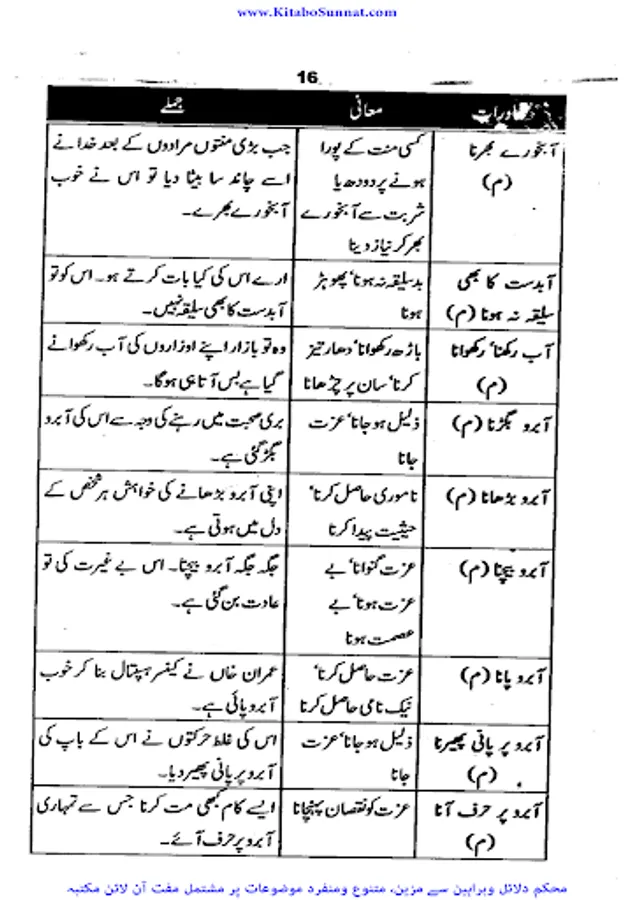 www.KitaboSunnat.com
16
محاورات معانی جملے
آبخورے بھرنا کسی منت کے پورا جب بڑی منتوں مرادوں کے بعد خدا نے
(م) ہونے پر دودھ یا اسے چاند سا بیٹا دیا تو اس نے خوب
شربت سے آبخورے آبخورے بھرے۔
بھر کر نیاز دینا
آبدست کا بھی بدسلیقہ نہ ہونا' پھوہڑ ارے اس کی کیا بات کرتے ہو۔ اس کو تو
سلیقہ نہ ہونا (م) ہونا آبدست کا بھی سلیقہ نہیں۔
آب رکھنا' رکھوانا باڑھ رکھوانا' دھار تیز وہ تو بازار اپنے اوزاروں کی آب رکھوانے
(م) کرنا' سان پر چڑھانا گیا ہے بس آتا ہی ہوگا۔
آبرو بگڑنا (م) ذلیل ہو جانا' عزت بری صحبت میں رہنے کی وجہ سے اس کی آبرو
جانا بگڑ گئی ہے۔
آبرو بڑھانا (م) ناموری حاصل کرنا' اپنی آبرو بڑھانے کی خواہش ہر شخص کے
حیثیت پیدا کرنا دل میں ہوتی ہے۔
آبرو بیچنا (م) عزت گنوانا' بے جگہ جگہ آبرو بیچنا۔ اس بے غیرت کی تو
عزت ہونا' بے عادت بن گئی ہے۔
عصمت ہونا
آبرو پانا (م) عزت حاصل کرنا' عمران خاں نے کینسر ہسپتال بنا کر خوب
نیک نامی حاصل کرنا آبرو پائی ہے۔
آبرو پر پانی پھیرنا ذلیل ہو جانا' عزت اس کی غلط حرکتوں نے اس کے باپ کی
(م) جانا آبرو پر پانی پھیر دیا۔
آبرو پر حرف آنا عزت کو نقصان پہنچانا ایسے کام کبھی مت کرنا جس سے تمہاری
(م) آبرو پر حرف آئے۔
محکم دلائل وبراہین سے مزین، متنوع ومنفرد موضوعات پر مشتمل مفت آن لائن مکتبہ